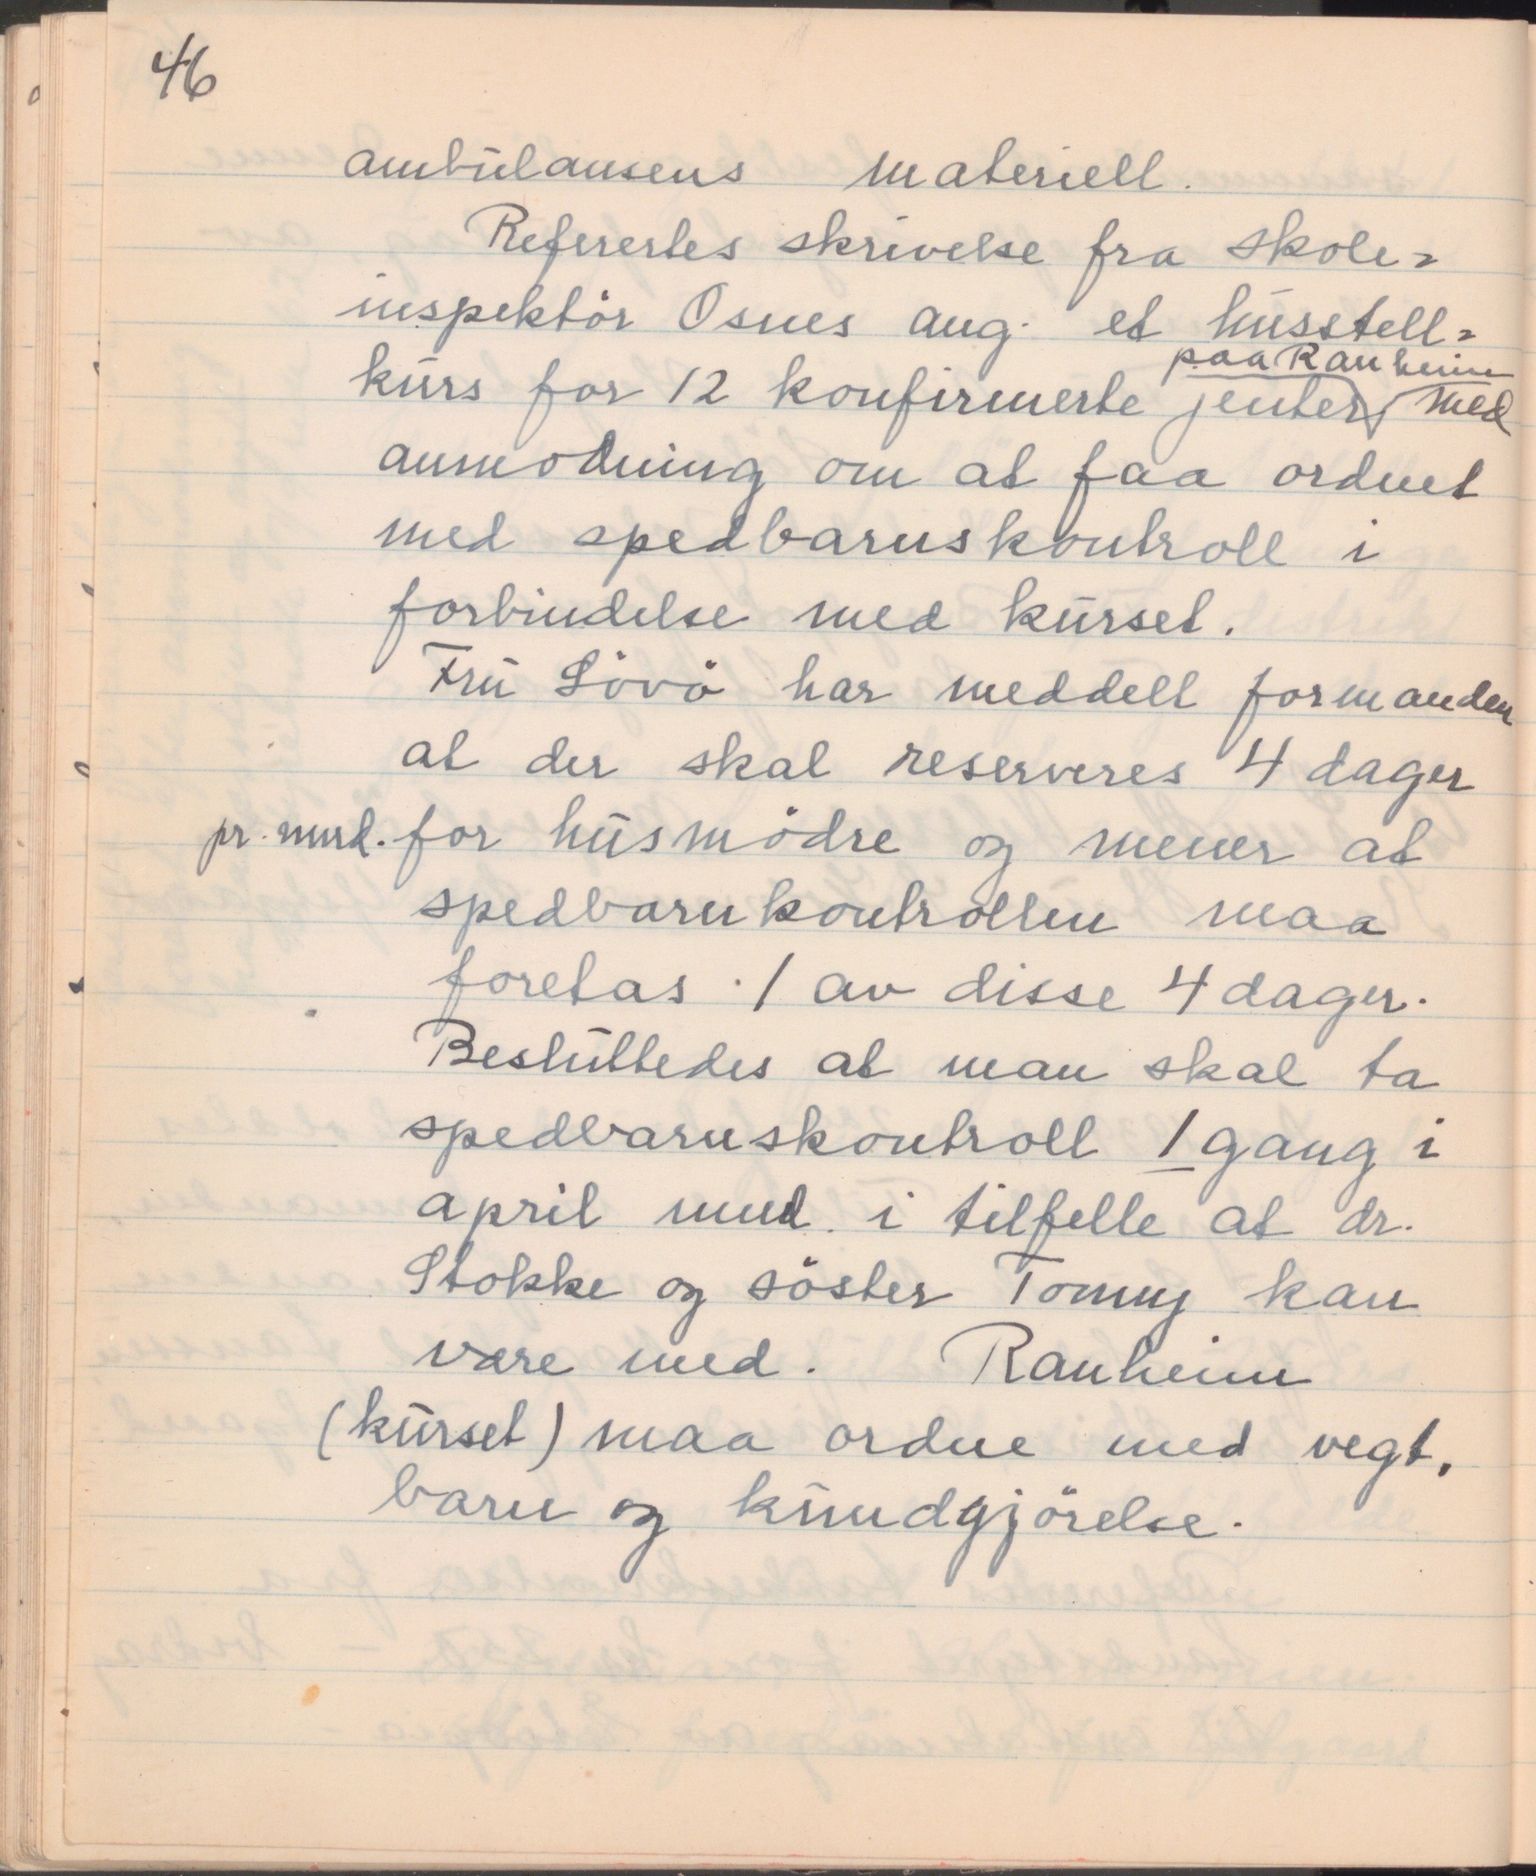 46
ambulansens materiell.
Referertes skrivelse fra skole=
inspektör Osnes ang. et husstell=
paa Ranheim
kurs for 12 konfirmerte jenter, med
anmodning om at faa ordnet
med spedbarnskontroll i
forbindelse med kurset.
Fru Lövö har meddelt formanden
at der skal reserveres 4 dager
pr. mnd. for husmödre og mener at
spedbarnkontrollen maa
foretas 1 av disse 4 dager.
Besluttedes at man skal ta
spedbarnskontroll 1 gang i
april mnd. i tilfelle at dr.
Stokke og söster Tommy kan
være med. Ranheim
(kurset) maa ordne med vegt,
barn og kundgjörelse.